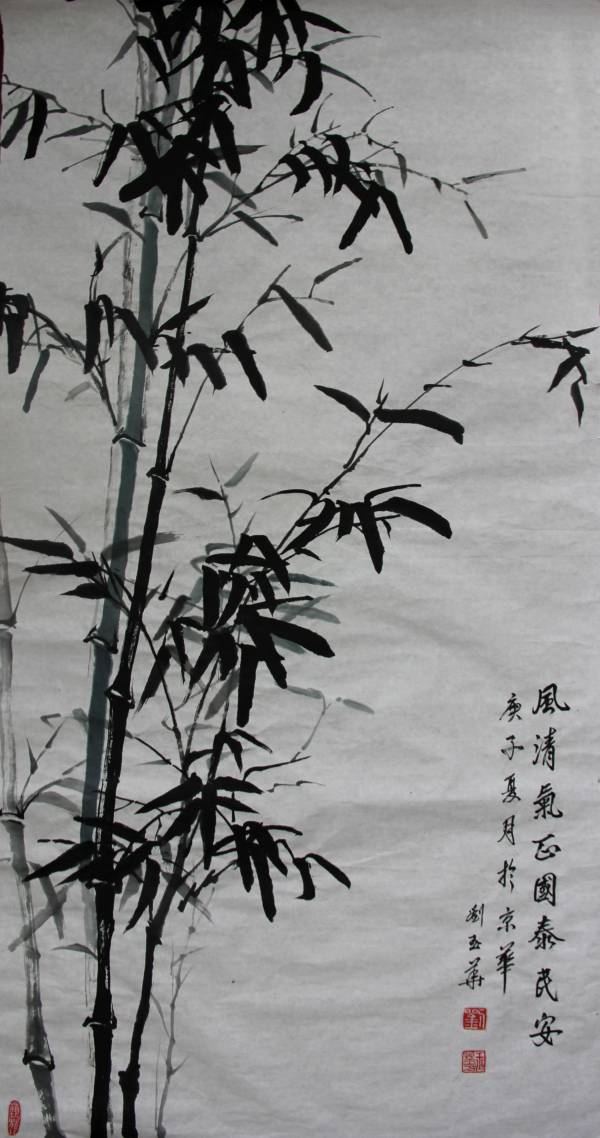 風清氣正國泰民安
庚子夏月於京華
劉玉華